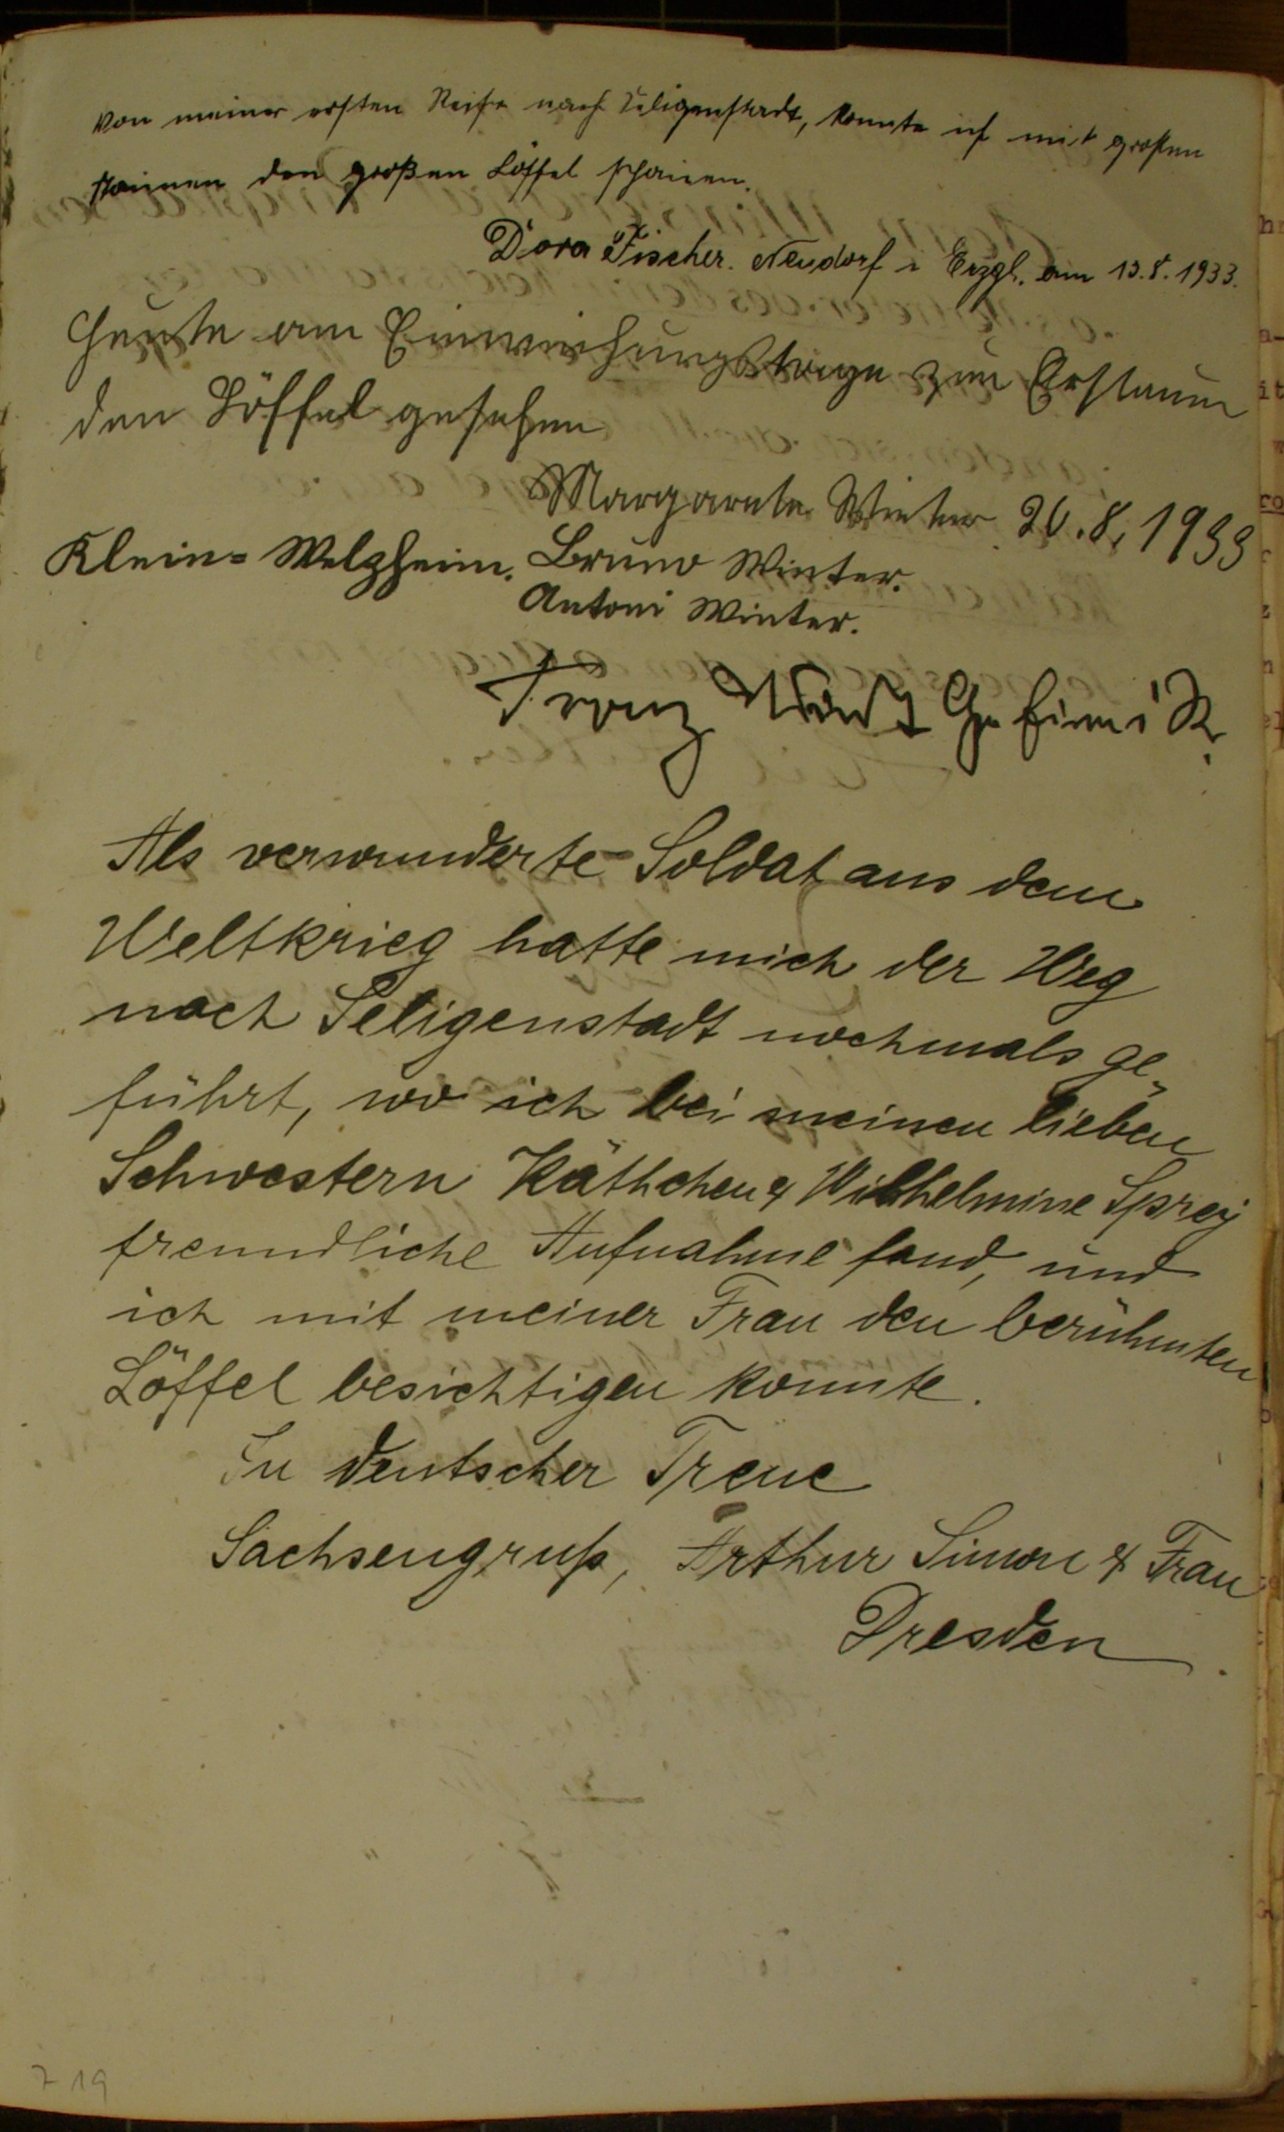 Von meiner ersten Reise nach Seligenstadt, konnte ich mit großen
staunen den großen Löffel schauen.
Dora Fischer. Neudorf i Erzgb. am 13.8.1933.
Heute am Einweihungstage zum Erstaunen
den Löffel gesehen
Margarete Winter 20.8.1933
Klein-Welzheim. Bruno Winter.
Antoni Winter.
Franz
Als verwunderte Soldat aus dem
Weltkrieg hatte mich der Weg
nach Seligenstadt nochmals ge-
führt, wo ich bei meinen lieben
Schwestern Käthchen & Wilhelmine Sprey
freundliche Aufnahme fand, und
ich mit meiner Frau den berühmten
Löffel besichtigen konnte.
In deutscher Treue
Sachsengruß, Arthur Simon & Frau
Dresden.
719